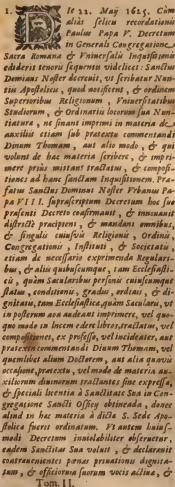 I. Die 22. Maij 1625. Cùm
aliàs felicis recordationis
Paulus Papa V. Decretum
in Generali Congregatione
Sacra Romana & Vniuersalis Inquisitionis
ediderit tenoris sequentis videlicet: Sanctus
Dominus Noster decreuit, vt scribatur Nun-
tiis Apostolicis, quod notificent, & ordinent
Superioribus Religionum, Vniuersitatibus
Studiorum, & Ordinariis locorum suæ Nun-
tiaturæ, ne sinant imprimi in materia de
auxiliis etiam sub prætextu commentandi
Diuum Thomam, aut alio modo, & qui
volunt de hac materia scribere, & impri-
mere prius mittant tractatus, & composi-
tiones ad hanc sanctam Inquisitionem. Præ-
fatus Sanctus Dominus Noster Vrbanus Pa-
pa VIII. suprascriptum Decretum hoc suo
præsenti Decreto confirmauit, & innouauit
districtè præcipens, & mandans omnibus,
& singulis cuiusuis Religionis, Ordinis,
Congregationis, Instituti, & Societatis,
etiam de necessario exprimenda Regulari-
bus, & aliis quibuscumque, tam Ecclesiasti-
cis, quàm Sæcularibus personis cuiuscumque
status, conditionis, gradus, ordinis, & di-
gnitatis, tam Ecclesiasticæ, quàm Sæcularis, vt
in posterum non audeant imprimere, vel quo-
quo modo in lucem edere libros, tractatus, vel
compositiones, ex professo, vel incidenter, aut
prætextu commentandi Diuum Thomam, vel
quemlibet alium Doctorem, aut alia quauis
occasione, prætextu, vel modo de materia au-
xiliorum diuinorum tractantes sine expressa,
& speciali licentia à Sanctitate Sua in Con-
gregatione Sancti Officij obtinenda, donec
aliud in hac materia à dicta S. Sede Apo-
stolica fuerit ordinatum. Vt autem huius-
modi Decretum inuiolabiliter obseruetur,
eadem Sanctitas Sua voluit, & declarauit
contrauenientes pœnas priuationis dignita-
tum, & officiorum suorum vocis actiuæ, &
Tom. II.